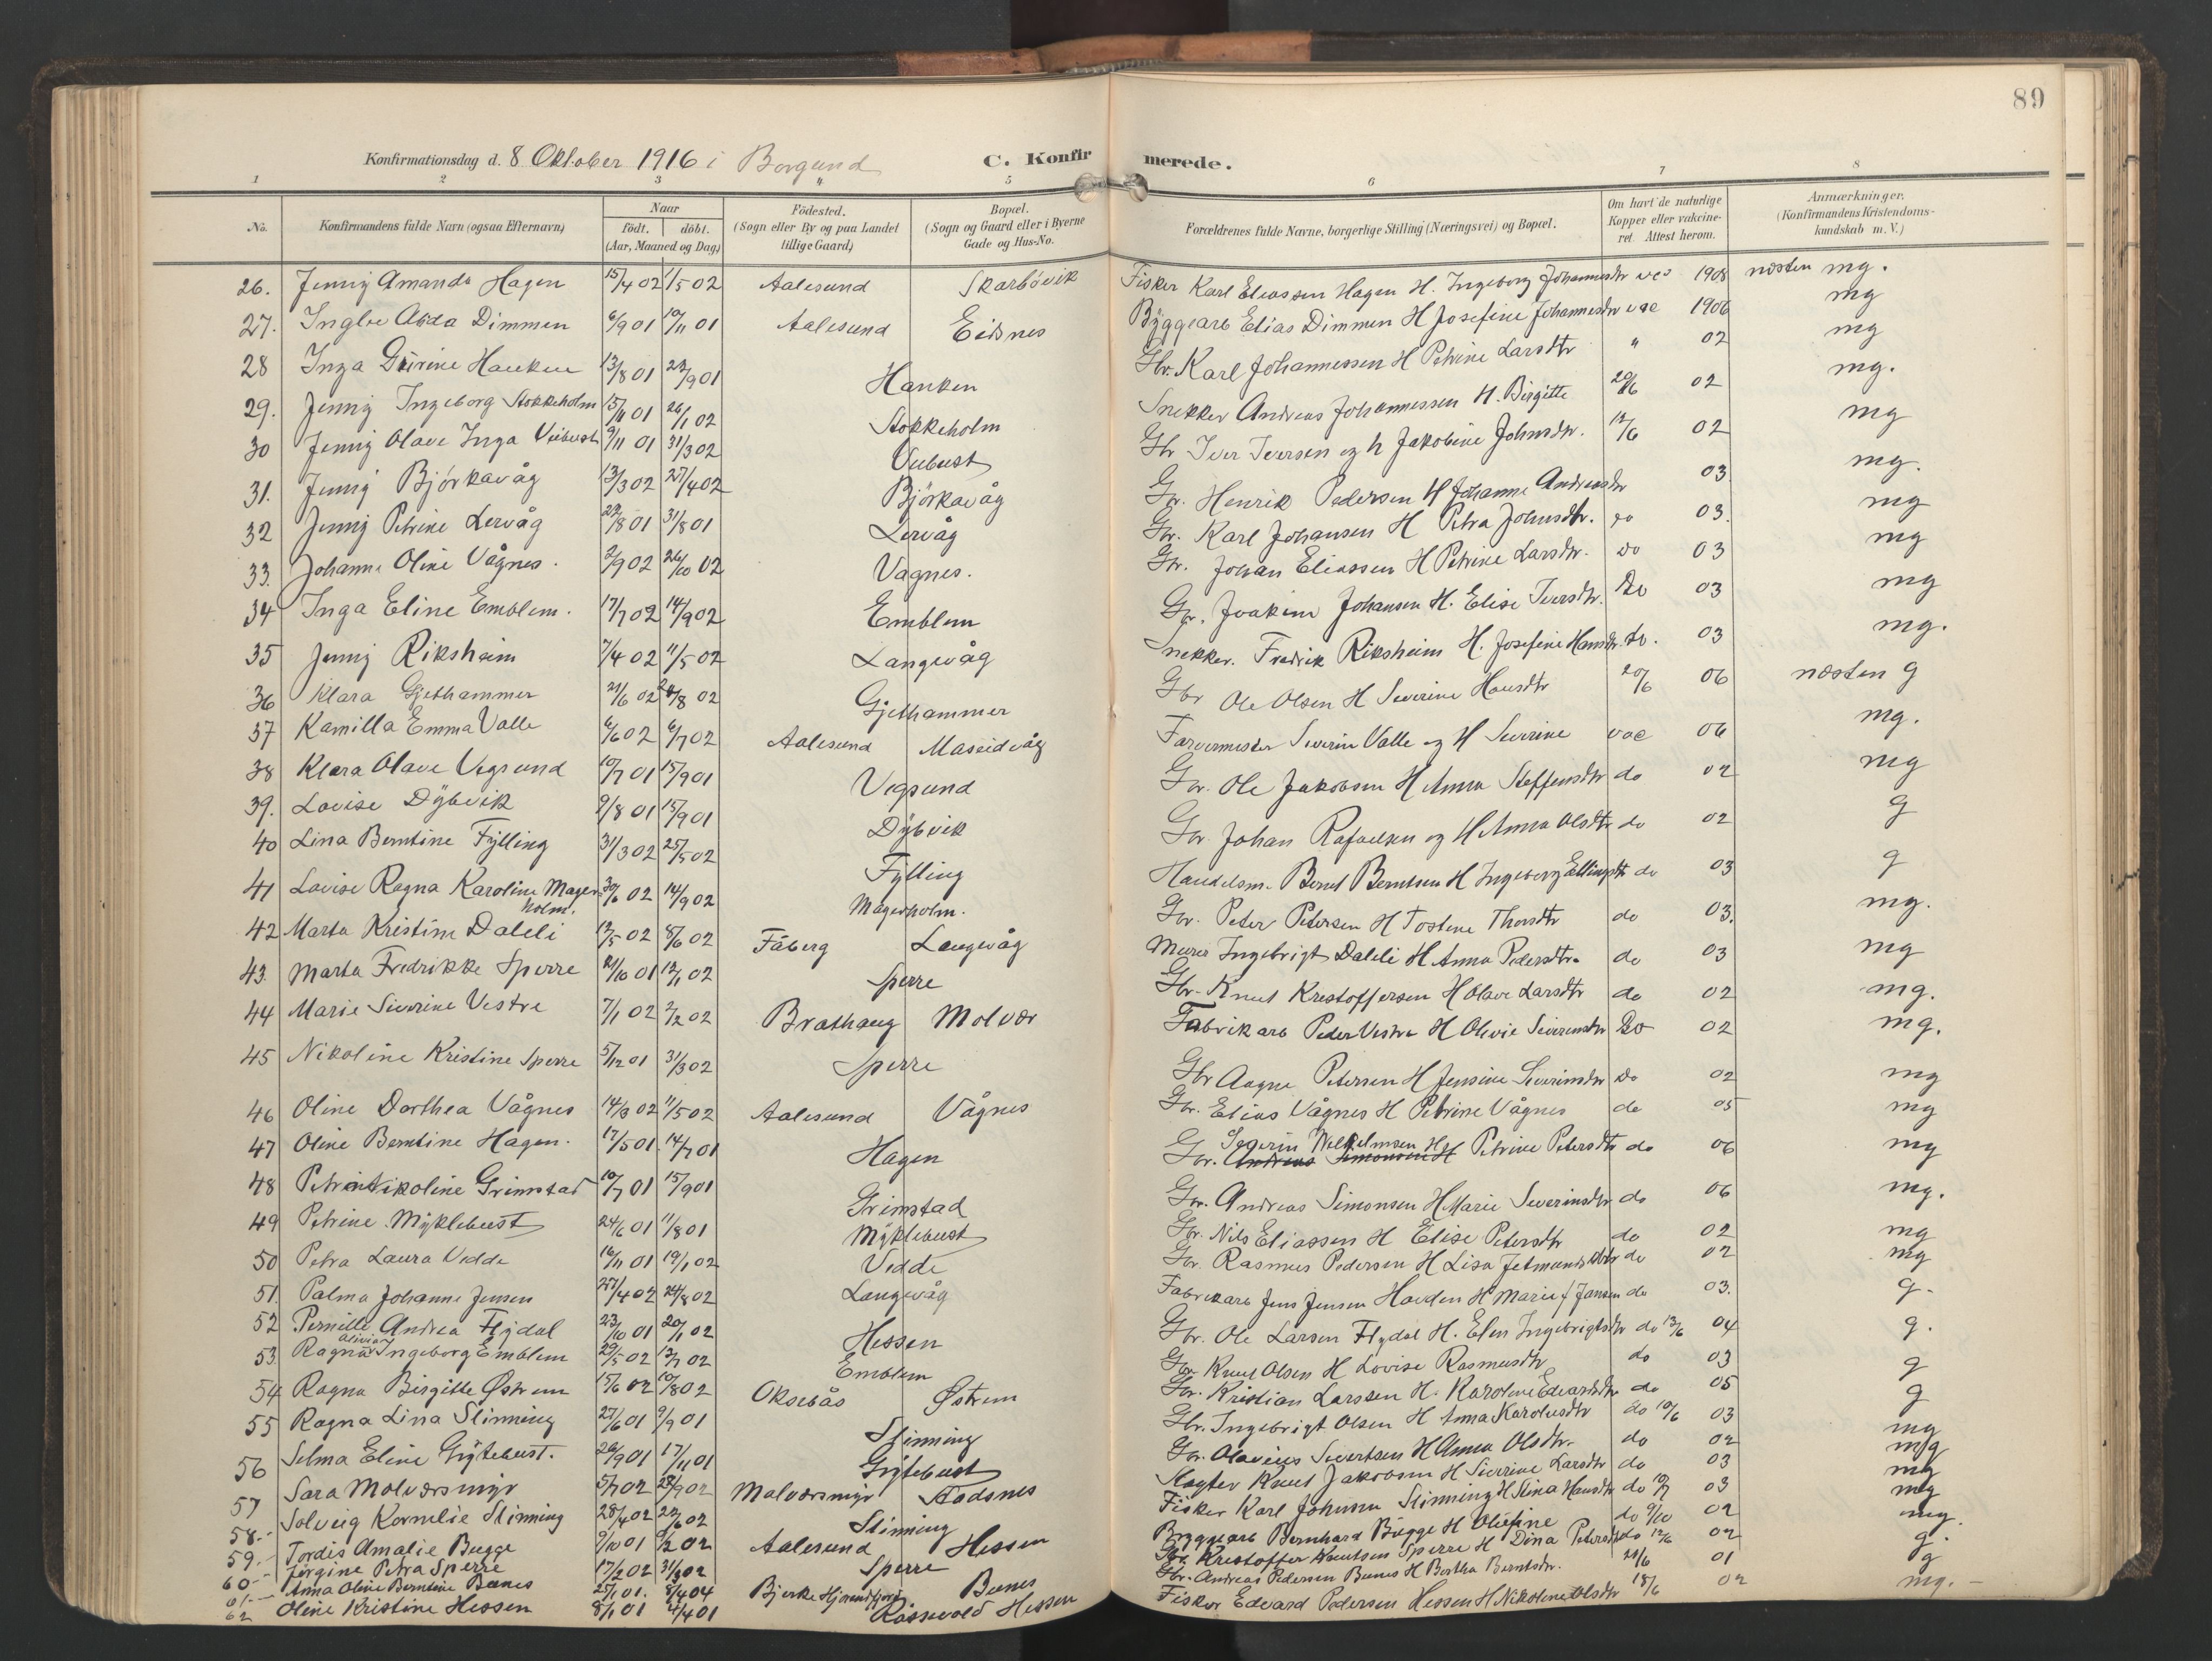 89
Konfirmationsdag d. 8 Oktober 1916 i Borgund C. Konfirmerede.
1 2 3 4 5 6 7 8
No. Konfirmandens fulde Navn (ogsaa Efternavn) Naar født. døbt. (Aar, Maaned og Dag) Fødested. (Sogn eller By og paa Landet tillige Gaard) Bopæl. (Sogn og Gaard eller i Byerne Gade og Hus-No. Forældrenes fulde Navne, borgerlige Stilling (Næringsvei) og Bopæl. Om havt de naturlige Kopper eller vakcineret. Attest herom. Anmærkninger. (Konfirmandens Kristendomskundskab m. V.)
26. Jenny Amanda Hagen 15/4 02 11/5 02 Aalesund Skarbövik Fisker Karl Eliassen Hagen H. Ingeborg Johannesdtr vac 1908 næsten mg.
27. Aida Dimmen 6/9 01 10/11 01 Aalesund Eidsnes Byggearb Elias Dimmen H Josefine Johannesdtr vac 1906 mg
28 Inga Hanken 13/8 01 22/9 01 Hanken Gbr. Karl Johannessen H Petrine Larsdtr " 02 mg
29. Jenny Ingeborg Stokkeholm 15/11 01 26/1 02 Stokkeholm Snekker Andreas Johannessen H. Birgitte 20/6 02 mg.
30 Jenny Olave Inga Veibust 9/11 01 31/3 02 Veibust Gbr Iver Iversen og h Jakobine Johnsdtr. 12/6 02 mg
31. Jenny Bjørkavåg 13/3 02 27/4 02 Björkavåg Gbr. Henrik Pedersen H Johanne Andreasdtr 03 mg.
32 Jenny Petrine Lervåg 22/8 01 31/8 01 Lervåg Gbr. Karl Johansen H Petra Johnsdtr. do 03. mg
33. Johanne Oline Vågnes. 2/9 02 26/10 02 Vagnes. Gbr. Johan Eliassen H Petrine Larsdtr. do 03 mg
34 Inga Eline Emblem. 17/7 02 14/9 02 Emblem Gbr. Joakim Johansen H. Elise Iversdtr. Do 03 mg
35 Jenny Riksheim 7/4 02 11/5 02 Langevåg Snekker. Fredrik Riksheim H. Josefine Hansdtr do. 03 mg.
36 Klara Gjethammer 21/6 02 24/8 02 Gjethammer Gbr Ole Olsen H Severine Hansdtr 20/6 06 næsten g
37 Kamilla Emma Valle 6/6 02 6/7 02 Aalesund Maseidvåg Farvermester Severin Valle og H Severine vac 06 mg.
38 Klara Olave Vegsund 10/7 01 15/9 01 Vegsund Gbr. Ole Jakobsen H Anna Steffensdtr do 02 mg
39. Lovise Dybvik 9/8 01 15/9 01 Dybvik Gbr. Johan Rafaelsen og H Anna Olsdtr do 02 g
40 Lina Berntine Fylling 31/3 02 25/5 02 Fylling Handelsm. Bernt Berntsen H Ingeborg Ellingsdtr do 03 g
41 Lovise Ragna Karoline Magerholm. 30/6 02 14/9 02 Magerholm. Gbr. Peter Petersen H Tostene Thorsdtr do 03. mg.
42 Marta Kristine Daleli 12/5 02 8/6 02 Fåberg Langevåg Murer Ingebrigt Daleli H Anna Pedersdtr. do 03 mg
43. Marta Fredrikke Sperre 21/10 01 12/1 02 Sperre Gbr. Knut Kristoffersen H Olave Larsdtr do 02 mg.
44 Marie Siverine Vestre 7/1 02 2/2 02 Brathaug Molvær Fabrikarb Peder Vestre H Olivie Siverinsdtr Do 02 mg.
45 Nikoline Kristine Sperre 5/12 01 31/3 02 Sperre Gbr Aagne Petersen H Jensine Siverinsdtr Do 02 mg
46 Oline Dorthea Vågnes 14/3 02 11/5 02 Aalesund Vågnes Gbr. Elias Vågnes H Petrine Vågnes do 05 mg
47 Oline Berntine Hagen. 17/5 01 14/7 01 Hagen Gbr. Severin Vilhelmsen H Petrine Petersdtr do 06 mg
48 Petrine Nikoline Grimstad 10/7 01 15/9 01 Grimstad Gbr. Andreas Simonsen H Marie Severinsdtr do 06 mg.
49 Petrine Myklebust 24/6 01 11/8 01 Myklebust Gbr. Nils Eliassen H Elise Petersdtr do 02 mg
50 Petra Laura Vedde 16/11 01 19/1 02 Vedde Gbr. Rasmus Pedersen H Lisa do 02 mg
51. Palma Johanne Jensen 27/4 02 24/8 02 Langevåg Fabrikarb Jens Jensen Hovden H Marie f Jansen do 03. g.
52 Pernille Andrea Flydal 23/10 01 20/1 02 Hessen Gbr. Ole Larsen Flydal H. Elen Ingebrigtsdtr do 13/6 04 g.
53. Ragna Olivia Ingeborg Emblem 29/5 02 13/7 02 Emblem Gbr. Knut Olsen H Lovise Rasmusdtr do 03 g
54 Ragna Birgitte Østrem 15/6 02 10/8 02 Oksebås Østrem Gbr. Kristian Larssen H. Karoline Edvardsdtr do 05 g
55 Ragna Lina Slinning 27/6 01 9/9 01 Slinning Gbr. Ingebrigt Olsen H Anna Karolusdtr do 10/6 03 mg
56 Selma Eline Grytebust. 26/9 01 17/11 01 Grytebust Gbr. Olavius Sivertsen H Anna Olsdtr. do 02 mg
57 Sara Molværsmyr 5/7 02 28/9 02 Molværsmyr Stadsnes Slagter Knut Jakobsen H Siverine Larsdtr do 03 mg
58. Solveig Kornelie Slinning 28/4 02 22/6 02 Slinning Fisker Karl Johnsen Slinning H Stina Hansdtr do 03 mg
59. Tordis Amalie Bugge 9/10 01 9/2 02 Aalesund Hessen Byggearb Bernhard Bugge H Olefine do 9/10 02 mg.
60 Jørgine Petra Sperre 17/2 02 31/3 02 Sperre Gbr. Kristoffer Knutsen Sperre H Dina Petersdtr do 12/6 02 g.
61. Anna Oline Berntine Bønes 25/1 01. 8/4 04 Bjerke Hjørendfjord Bønes Gbr. Andreas Pedersen Bønes H Bertha Berntsdtr. 21/6 01 g
62 Oline Kristine Hessen 8/1 01 21/4 01 Hessen Fisker Edvard Pedersen Hessen H Nikoline Olsdtr 18/6 02 mg.